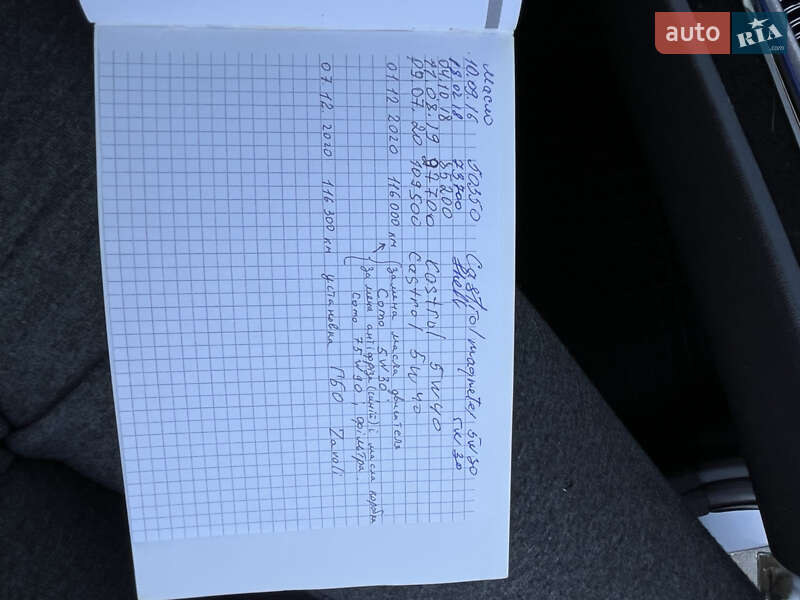 auto RIA.com
Масло
10.09.16 70350 Castrol magnetec 5W30
18.02.18 73700 Shell 5W30
04.10.18 85200
21.08.19 97700 Kastrol 5W40
09.07.20 109500 Castrol 5W40
01 12 2020 116000 км замена масла двигателя
Como 5W30
замена антіфрзи (синій) і масла коробки
Como 75W90, фільтра
07 12 2020 116300 км установка ГБО Zavoli